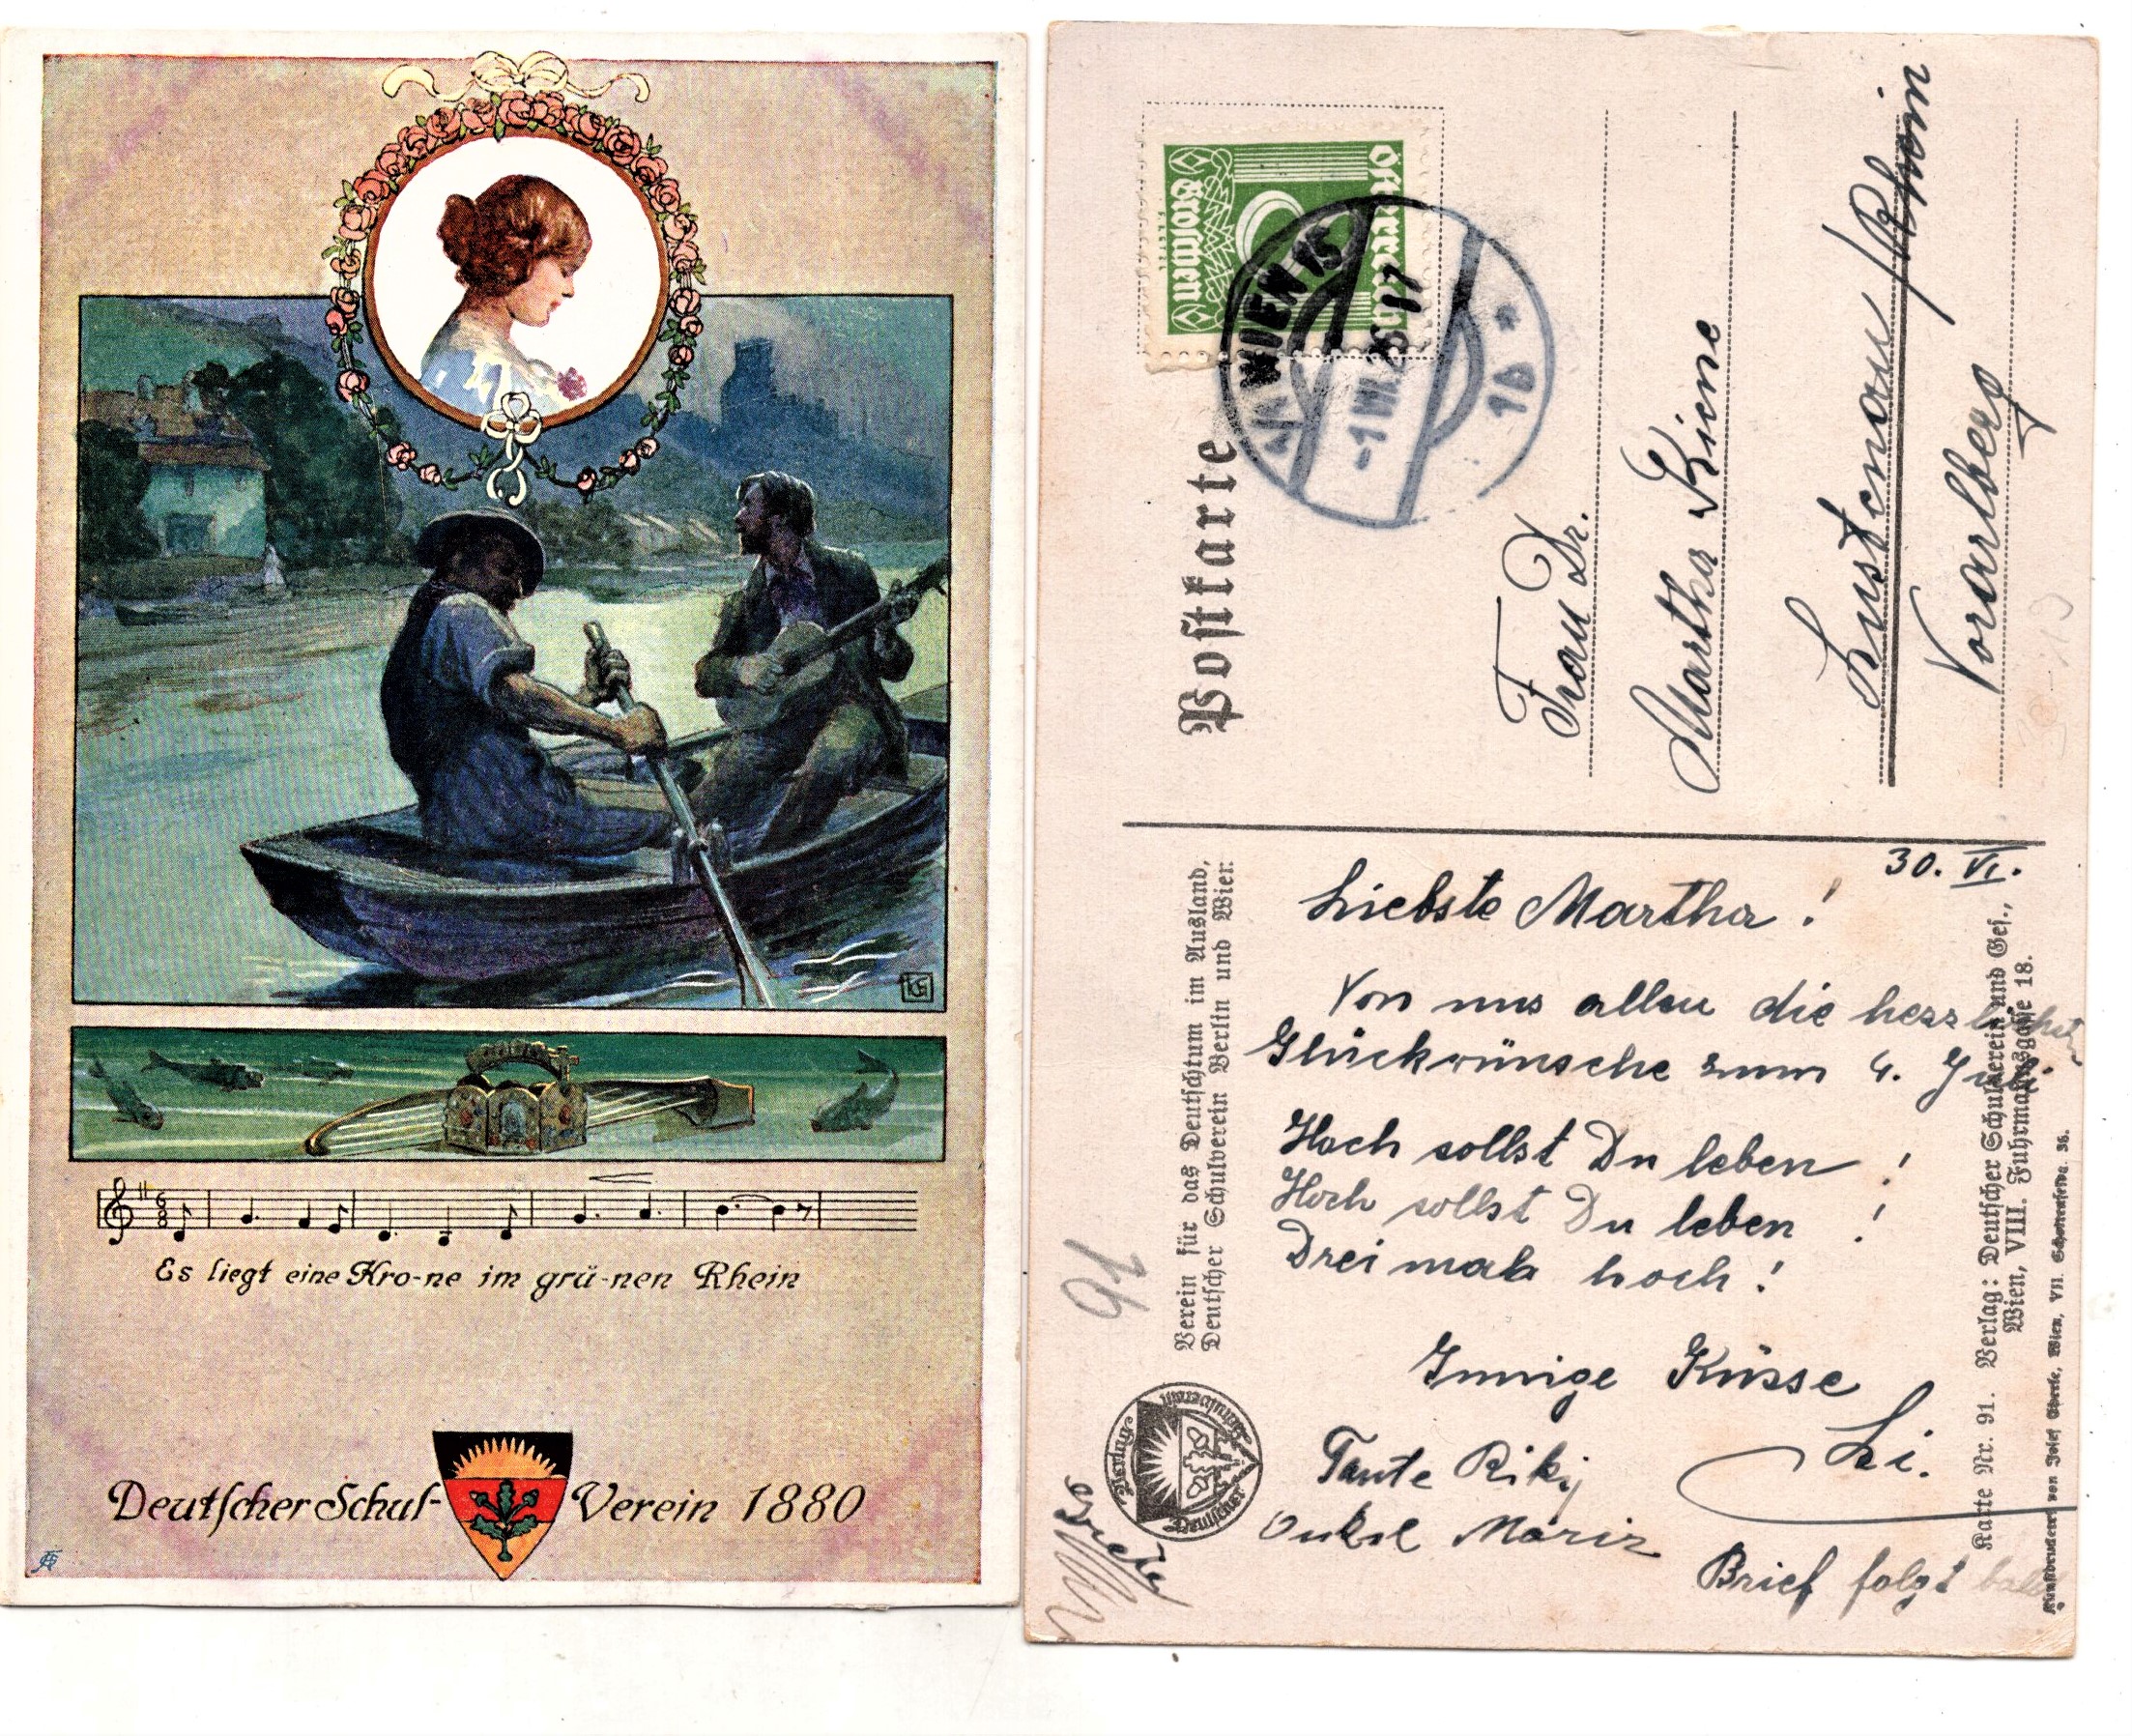 Es liegt eine Kro-ne im grü-nen Rhein
Deutscher Schul-Verein 1880
Postkarte
Österreich
Groschen
WIEN 15
-1.VII.26 17
1b *
Frau Dr.
Martha Kiene
Lustenau / Rhein
Vorarlberg
Verein für das Deutschtum im Ausland,
Deutscher Schulverein Berlin und Wien
30. VI.
Liebste Martha!
Von uns allen die herzlichsten
Glückwünsche zum 4. Juli
Hoch sollst Du leben!
Hoch sollst Du leben!
Dreimal hoch!
Innige Küsse
Li.
Tante Riky
Onkel Moriz
Brief folgt bald
Karte Nr. 91. Verlag: Deutscher Schulverein und Ges.,
Wien, VIII. Fuhrmannsgasse 18.
Kunstdruckerei von Josef Eberle, Wien, VII. Schottenfeldg. 38.
16